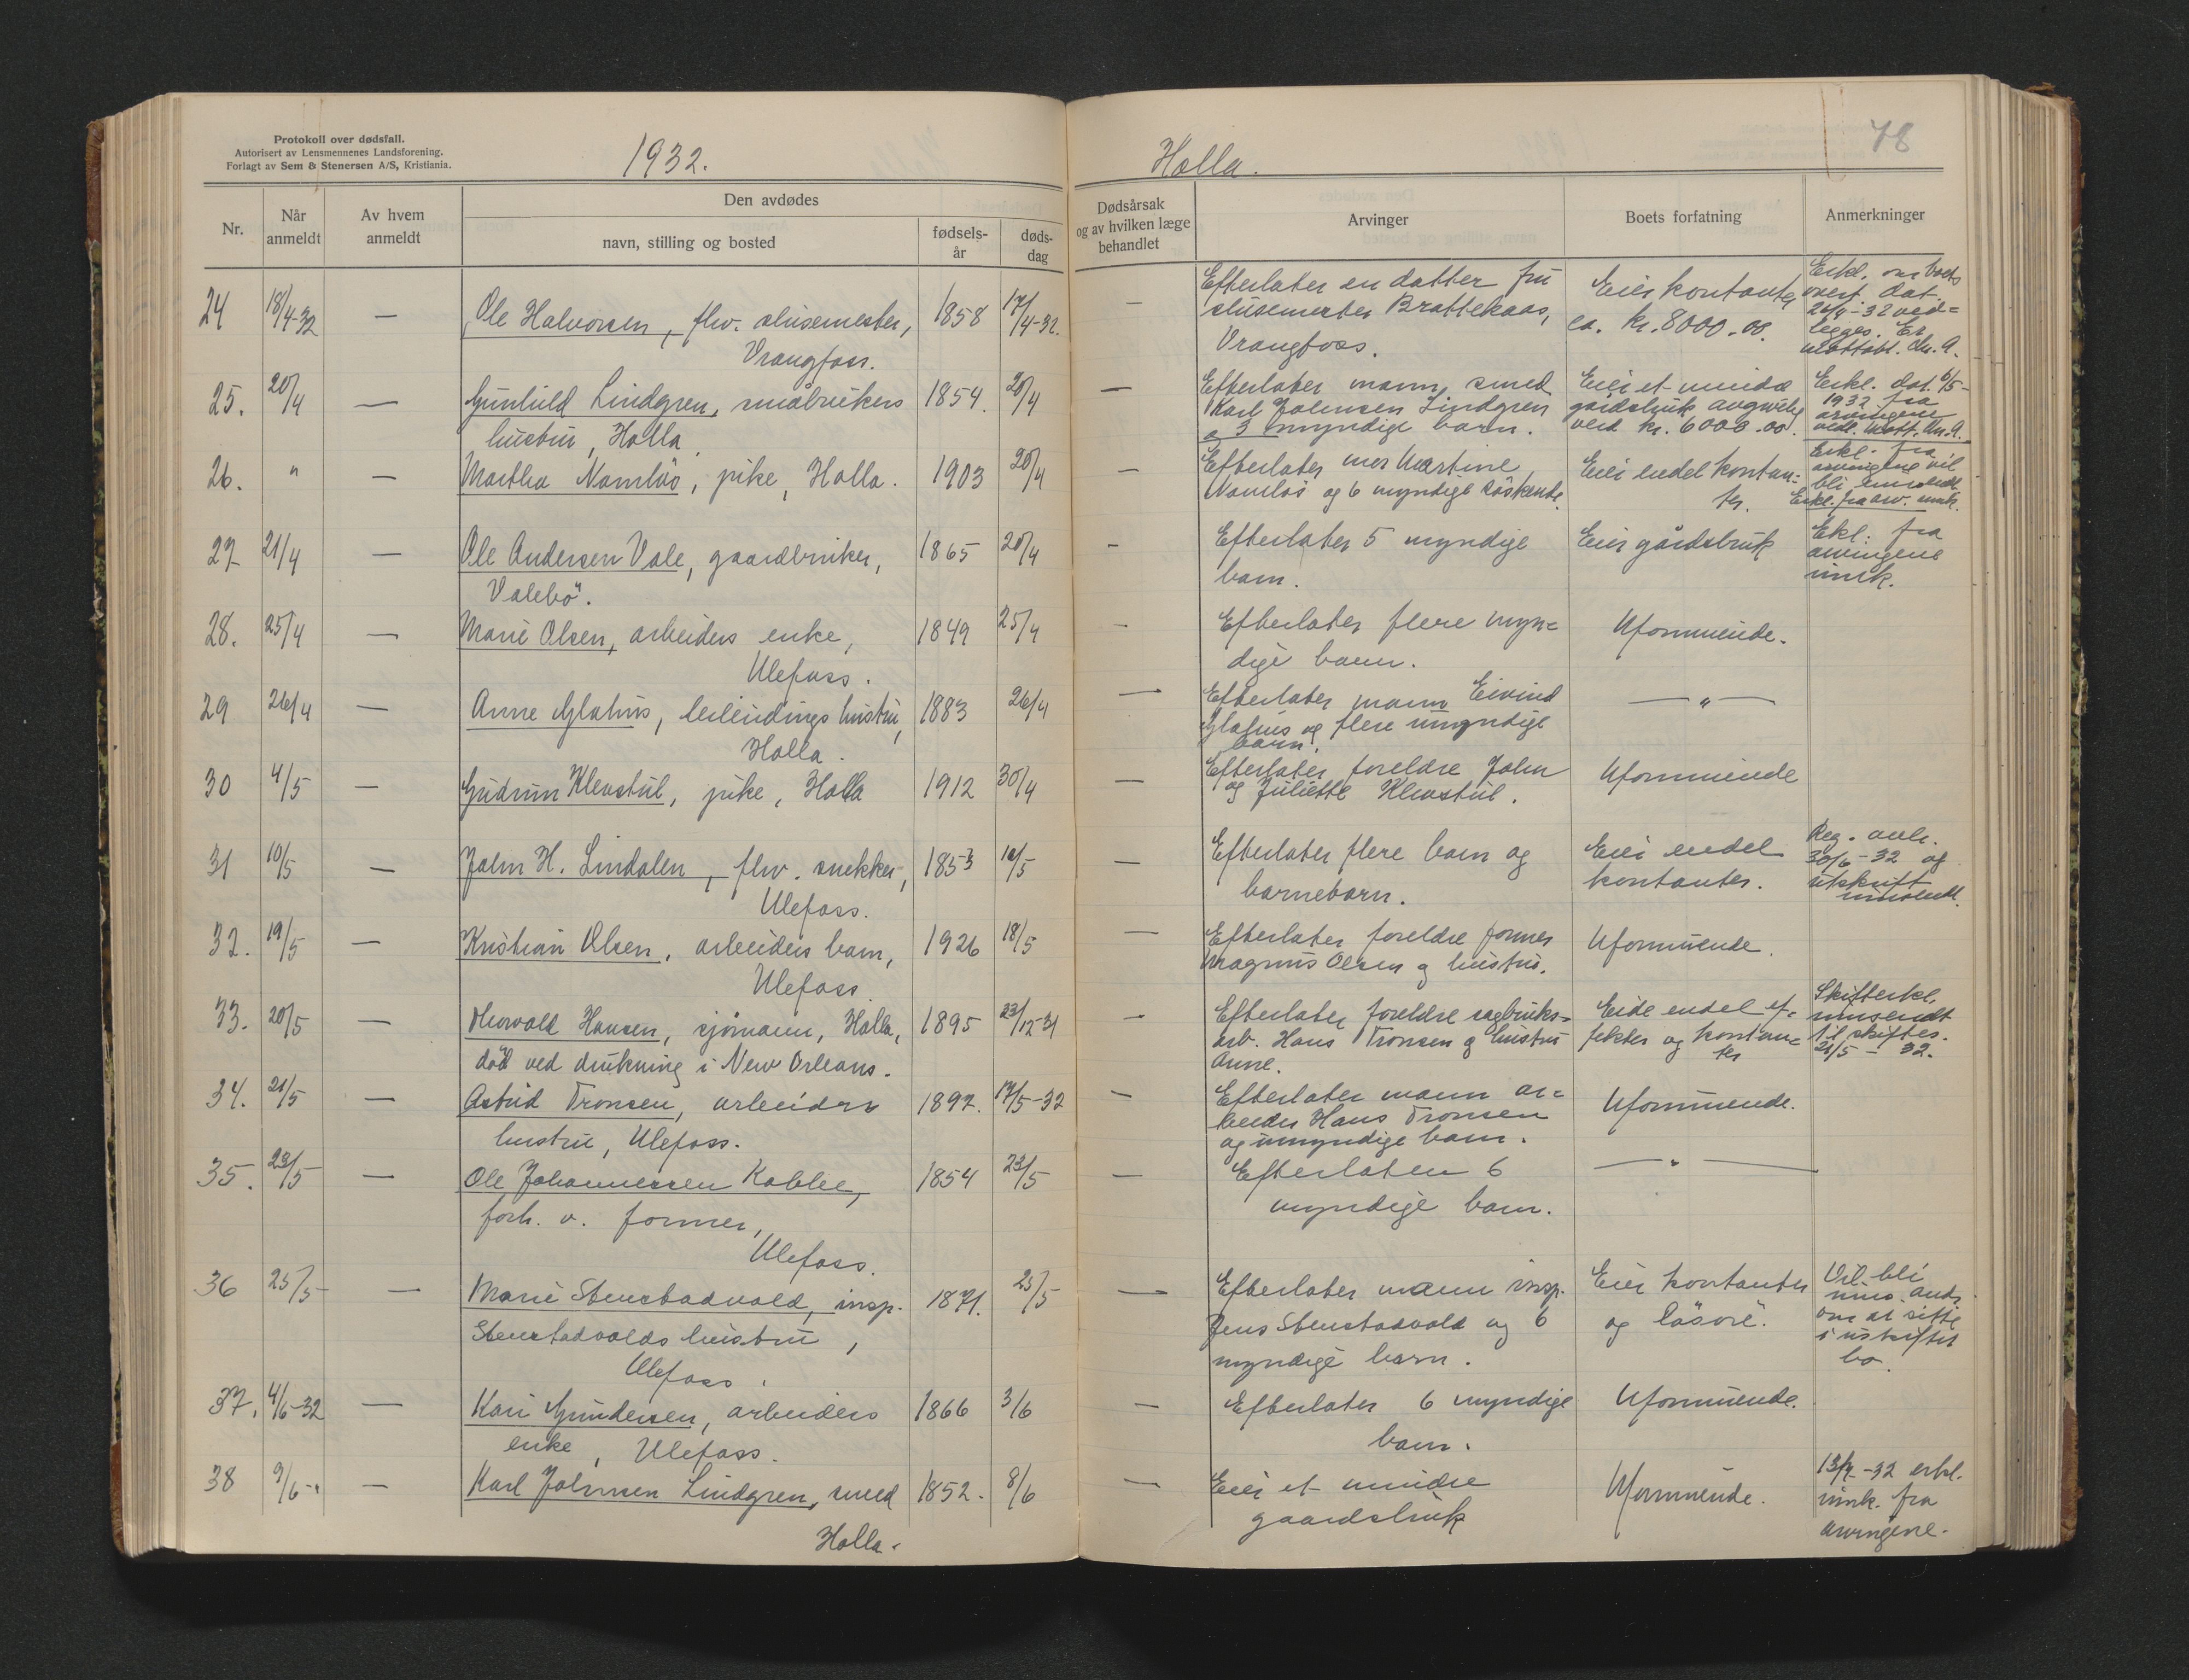 Protokoll over dødsfall.
Autorisert av Lensmennenes Landsforening.
Forlagt av Sem & Stenersen A/S, Kristiania.
1932.
Holla.
78
Nr.
Når anmeldt
Av hvem anmeldt
Den avdødes
navn, stilling og bosted
fødsels-år
døds-dag
Dødsårsak og av hvilken læge behandlet
Arvinger
Boets forfatning
Anmerkninger
24 18/4-32 — Ole Halvorsen, fhv. slusemester, 1858 17/4-32. — Efterlater en datter fru Eier kontanter Erkl. om boets
Vrangfoss. slusemester Brattekaas, ca. kr. 8000.00. overt. dat.
Vrangfoss. 26/4-32 ved=
legges. Er
mottatt. An. A.
25. 20/4 — Gunhild Lindgren, småbrukers 1854. 20/4 — Efterlater mann, smed Eier et mindre Erkl. dat. 6/5-
hustru, Holla Karl Johnsen Lindgren gårdsbruk 1932 fra
og 3 myndige barn. verd kr. 6000.00. arvingene
vedl. Mott. An. A.
26. " — Martha Namløs, pike, Holla. 1903 20/4 — Efterlater mor Martine Eier endel kontan= Erkl. fra
Namløs og 6 myndige søskende. ter. arvingene vil
bli innsendt
Erkl. fra arv. innk.
27 21/4 — Ole Andersen Vale, gaardbruker, 1865 20/4 - Efterlater 5 myndige Eier gårdsbruk Ekl. fra
Valebö. barn. arvingene
innk.
28. 25/4 — Marie Olsen, arbeiders enke, 1849 25/4 - Efterlater flere myn= Uformuende.
Ulefoss. dige barn.
29 26/4 — Anne Glahus, leilendings hustru, 1883 26/4 — Efterlater mann Eivind — " —
Holla. Glahus og flere umyndige
barn.
30 4/5 — Gudrun Klevstul, pike, Holla 1912 30/4 — Efterlater foreldre John Uformuende
og Juliette Klevstul.
31 10/5 — John H. Lindalen, fhv. snekker, 1853 10/5 — Efterlater flere barn og Eier endel Reg. avh.
Ulefoss. barnebarn. kontanter. 30/6-32 og
utskrift
innsendt.
32. 19/5 — Kristian Olsen, arbeiders barn, 1926 18/5 — Efterlater foreldre former Uformuende.
Ulefoss. Magnus Olsen og hustru.
33. 20/5 — Thorvald Hansen, sjømann, Holla, 1895 23/12-31 - Efterlater foreldre sagbruks= Eide endel ef= Skifteerkl.
död ved drukning i New Orleans. arb. Hans Tronsen og hustru fekter og kontan= innsendt
Anne. ter til skifter.
21/5 - 32.
34. 21/5 — Astrid Tronsen, arbeiders 1892. 17/5-32 — Efterlater mann ar= Uformuende.
hustru, Ulefoss. beider Hans Tronsen
og umyndige barn.
35. 23/5 — Ole Johannessen Kablie, 1854 22/5 — Efterlaten 6 — " —
forh. v. former, myndige barn.
Ulefoss.
36 25/5- — Marie Stenstadvold, insp. 1871. 25/5 — Efterlater mann insp. Eier kontanter Vil bli
Stenstadvolds hustru, Jens Stenstadvold og 6 og løsøre. inns. ands.
Ulefoss. myndige barn. om at sitte
i uskiftet
bo.
37. 4/6-32 — Kari Gundersen, arbeiders 1866 3/6 — Efterlater 6 myndige Uformuende.
enke, Ulefoss. barn.
38 9/6- — Karl Johnsen Lindgren, smed 1852. 8/6 — Eier et mindre Uformuende. 13/7-32 erkl.
Holla. gaardsbruk innk. fra
arvingene.